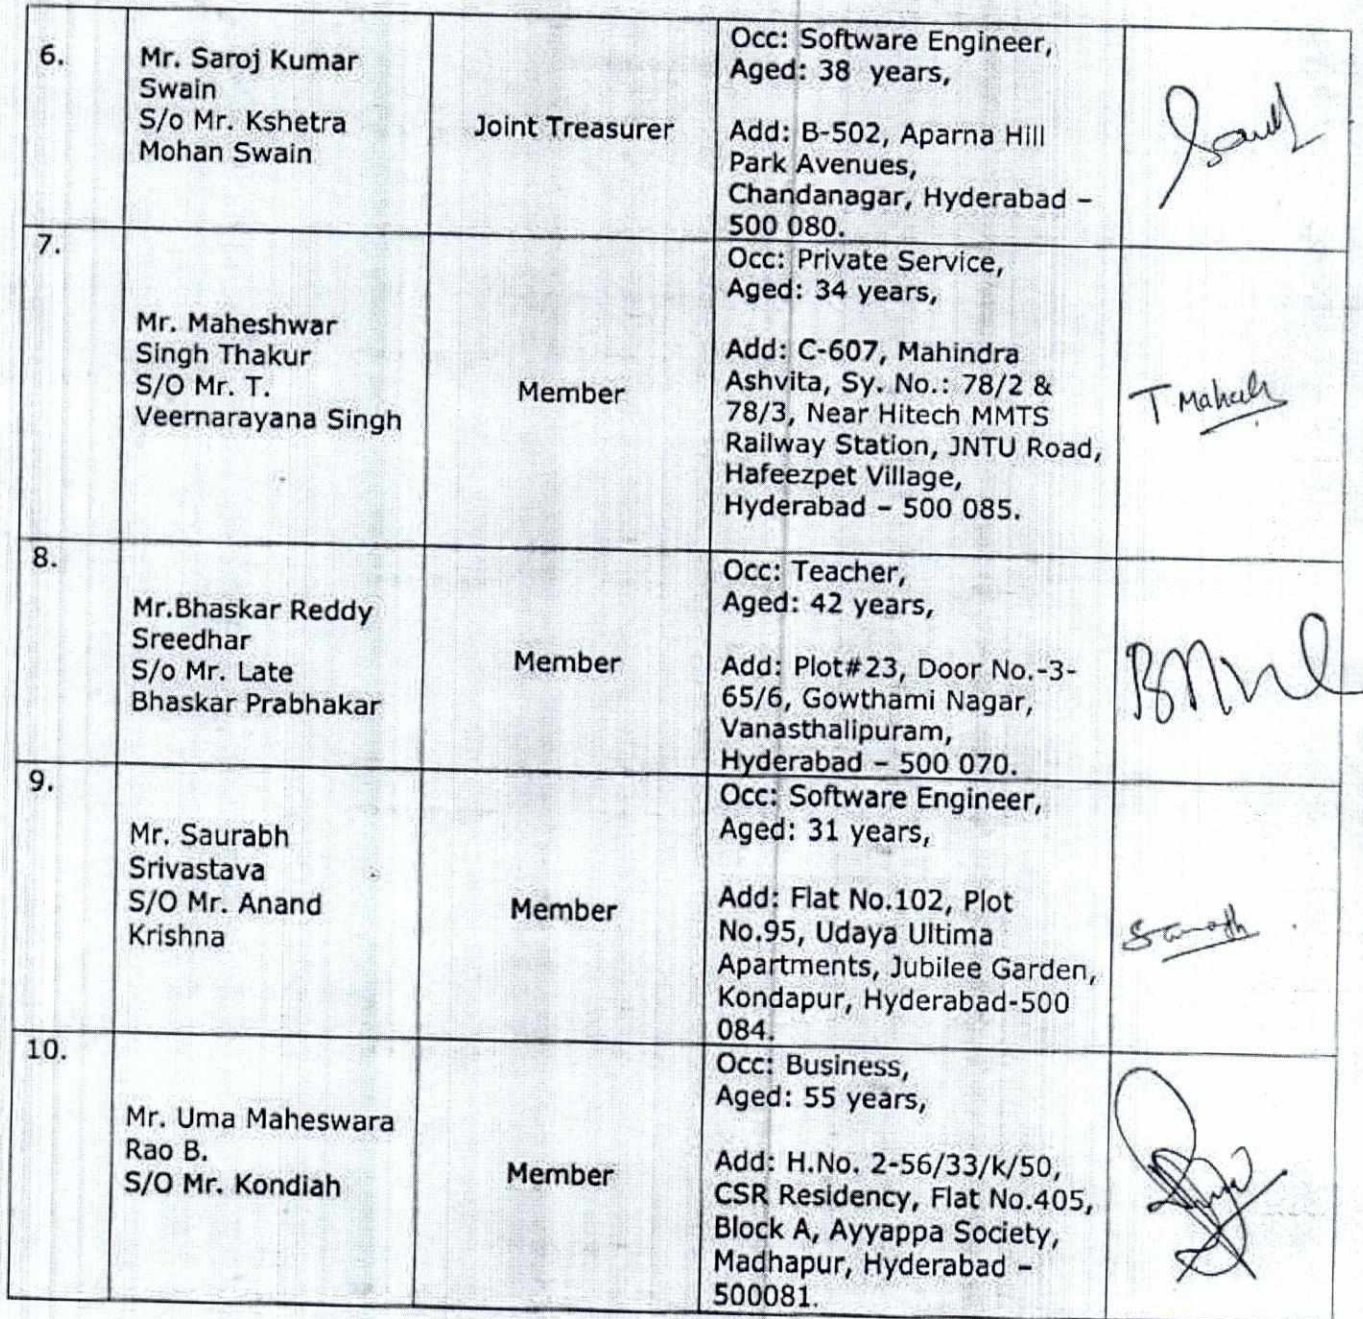 6.
Mr. Saroj Kumar
Swain
S/o Mr. Kshetra
Mohan Swain
Joint Treasurer
Occ: Software Engineer,
Aged: 38 years,
Add: B-502, Aparna Hill
Park Avenues,
Chandanagar, Hyderabad –
500 080.
7.
Mr. Maheshwar
Singh Thakur
S/O Mr. T.
Veernarayana Singh
Member
Occ: Private Service,
Aged: 34 years,
Add: C-607, Mahindra
Ashvita, Sy. No.: 78/2 &
78/3, Near Hitech MMTS
Railway Station, JNTU Road,
Hafeezpet Village,
Hyderabad – 500 085.
T
8.
Mr.Bhaskar Reddy
Sreedhar
S/o Mr. Late
Bhaskar Prabhakar
Member
Occ: Teacher,
Aged: 42 years,
Add: Plot#23, Door No.-3-
65/6, Gowthami Nagar,
Vanasthalipuram,
Hyderabad – 500 070.
9.
Mr. Saurabh
Srivastava
S/O Mr. Anand
Krishna
Member
Occ: Software Engineer,
Aged: 31 years,
Add: Flat No.102, Plot
No.95, Udaya Ultima
Apartments, Jubilee Garden,
Kondapur, Hyderabad-500
084.
10.
Mr. Uma Maheswara
Rao B.
S/O Mr. Kondiah
Member
Occ: Business,
Aged: 55 years,
Add: H.No. 2-56/33/k/50,
CSR Residency, Flat No.405,
Block A, Ayyappa Society,
Madhapur, Hyderabad –
500081.